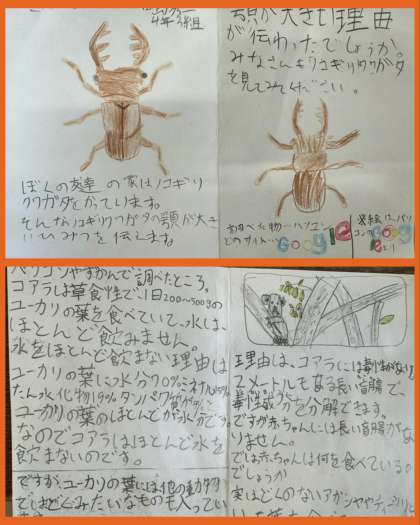 4年2組
ぼくの友達の家はノコギリ
クワガタをかっています。
そんなノコギリクワガタの顎が大き
いひみつを伝えます。
顎が大きい理由
が伝わったでしょうか。
みなさんもノコギリクワガタ
を見てみてください。
調べた物…パソコン
どのサイト…Google
図絵は、パソ
コンのGoog
leより
パソコンやずかんで調べたところ。
コアラは草食性で、1日200〜500gの
ユーカリの葉を食べていて、水は、
ほとんど飲みません。
水をほとんど飲まない理由は
ユーカリの葉に水分
たん水化物18%タンパク質が
ユーカリの葉のほとんどが水分です。
なのでコアラはほとんど水を
飲まないのです。
ですが、ユーカリの葉には他の動物
ではどくみたいなもの入ってい
理由は、コアラには毒性があり
2メートルもある長い盲腸で、
毒性成分を分解できます。
ですが赤ちゃんには長い盲腸があ
りません。
では赤ちゃんは何を食べている
でしょうか
実はどくのないアカシヤやティ